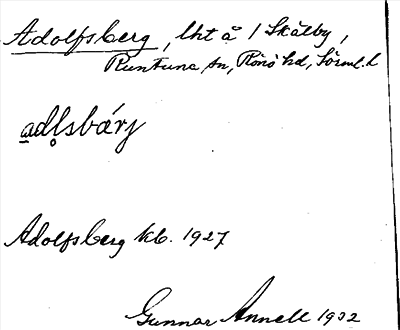 Adolfsberg, lht å 1 Skälby,
Runtuna sn, Rönö hd, Sörml. l
adl̥sbárj
Adolfsberg kb. 1927
Gunnar Annell 1932